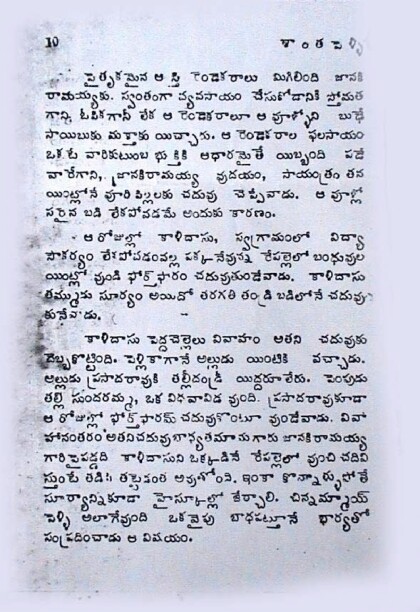 10 శాంత పెళ్ళి
పైతృకమైన ఆస్తి రెండెకరాలు మిగిలింది జానకి
రామయ్యకు. స్వంతంగా వ్యవసాయం చేసుకోడానికి స్తోమత
గాని, ఓపికగాని లేక ఆ రెండెకరాలూ ఆ వూళ్ళోని బుడే
సాయిబుకు మక్తాకు యిచ్చారు. ఆ రెండెకరాల ఫలసాయం
ఒకటే వారికుటుంబ భుక్తికి ఆధారమైతే యిబ్బంది పడే
వారేగాని, జానకిరామయ్య వుదయం, సాయంత్రం తన
యింట్లోనే వూరిపిల్లలకు చదువు చెప్పేవాడు. ఆ వూళ్లో
సరైన బడి లేకపోవడమే అందుకు కారణం.
ఆ రోజుల్లో కాళిదాసు, స్వగ్రామంలో విద్యా
సౌకర్యం లేకపోవడంవల్ల పక్కనేవున్న రేపల్లెలో బంధువుల
యింట్లో వుండి ఫోర్త్‌ఫారం చదువుతుండేవాడు. కాళిదాసు
తమ్ముడు సూర్యం అయిదో తరగతి తండ్రి బడిలోనే చదువు
కునేవాడు.
కాళిదాసు పెద్దచెల్లెలు వివాహం అతని చదువుకు
దెబ్బకొట్టింది. పెళ్లికాగానే అల్లుడు యింటికి వచ్చాడు.
అల్లుడు ప్రసాదరావుకి తల్లీదండ్రీ యిద్దరూలేరు. పెంపుడు
తల్లి సుందరమ్మ, ఒక విధవావిడ వుంది. ప్రసాదరావుకూడా
ఆ రోజుల్లో ఫోర్త్‌ఫారమ్ చదువుకొంటూ వుండేవాడు. వివా
హానంతరం అతనిచదువుబాధ్యతమామగారు జానకిరామయ్య
గారిపైపడ్డది. కాళిదాసుని ఒక్కడినే రేపల్లెలో వుంచి చదివి
స్తుంటే తడిసి తప్పెడంత అవుతోంది. ఇంకా కొన్నాళ్ళుపోతే
సూర్యాన్నికూడా హైస్కూల్లో చేర్చాలి. చిన్నమ్మాయ్
పెళ్ళి అలాగేవుంది ఒకవైపు బాధపట్తూనే భార్యతో
సంప్రదించాడు ఆ విషయం.